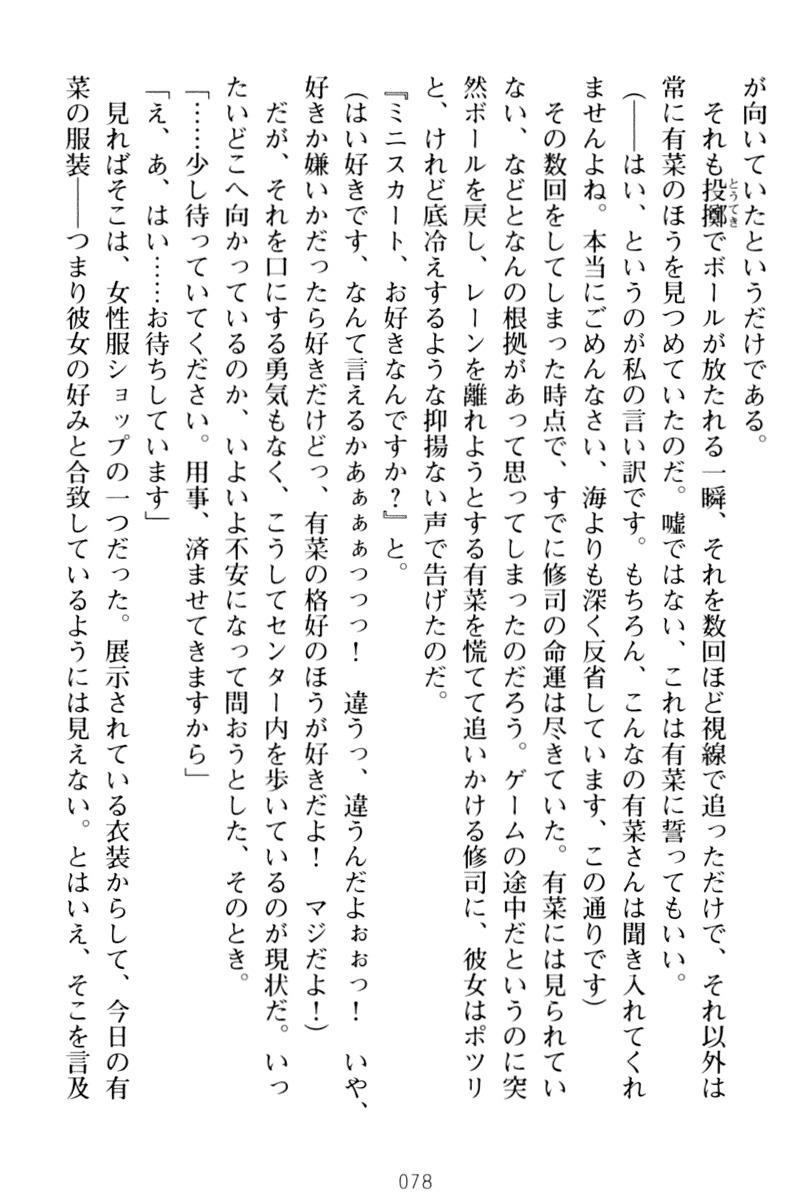 が向いていたというだけである。
　それも投擲とうてきでボールが放たれる一瞬、それを数回ほど視線で追っただけで、それ以外は
常に有菜のほうを見つめていたのだ。嘘ではない、これは有菜に誓ってもいい。
（――はい、というのが私の言い訳です。もちろん、こんなの有菜さんは聞き入れてくれ
ませんよね。本当にごめんなさい、海よりも深く反省しています、この通りです）
　その数回をしてしまった時点で、すでに修司の命運は尽きていた。有菜には見られてい
ない、などとなんの根拠があって思ってしまったのだろう。ゲームの途中だというのに突
然ボールを戻し、レーンを離れようとする有菜を慌てて追いかける修司に、彼女はポツリ
と、けれど底冷えするような抑揚ない声で告げたのだ。
『ミニスカート、お好きなんですか？』と。
（はい好きです、なんて言えるかあぁぁぁっっっ！　違うっ、違うんだよぉぉっ！　いや、
好きか嫌いかだったら好きだけどっ、有菜の格好のほうが好きだよ！　マジだよ！）
　だが、それを口にする勇気もなく、こうしてセンター内を歩いているのが現状だ。いっ
たいどこへ向かっているのか、いよいよ不安になって問おうとした、そのとき。
「……少し待っていてください。用事、済ませてきますから」
「え、あ、はい……お待ちしています」
　見ればそこは、女性服ショップの一つだった。展示されている衣装からして、今日の有
菜の服装――つまり彼女の好みと合致しているようには見えない。とはいえ、そこを言及
078